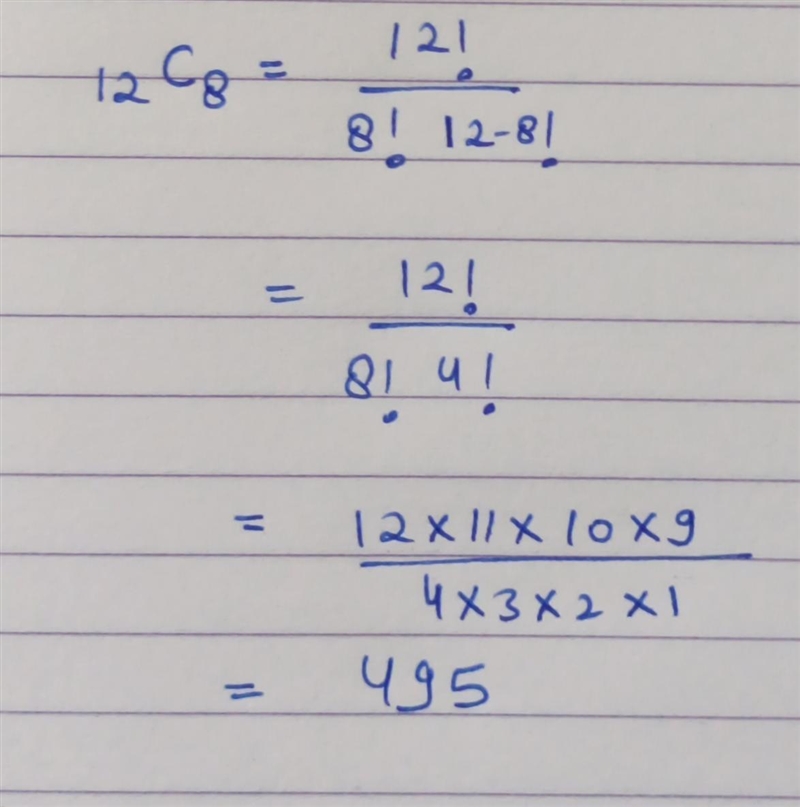 ₁₂C₈ = 12!
8! 12-8!
= 12!
8! 4!
= 12×11×10×9
4×3×2×1
= 495